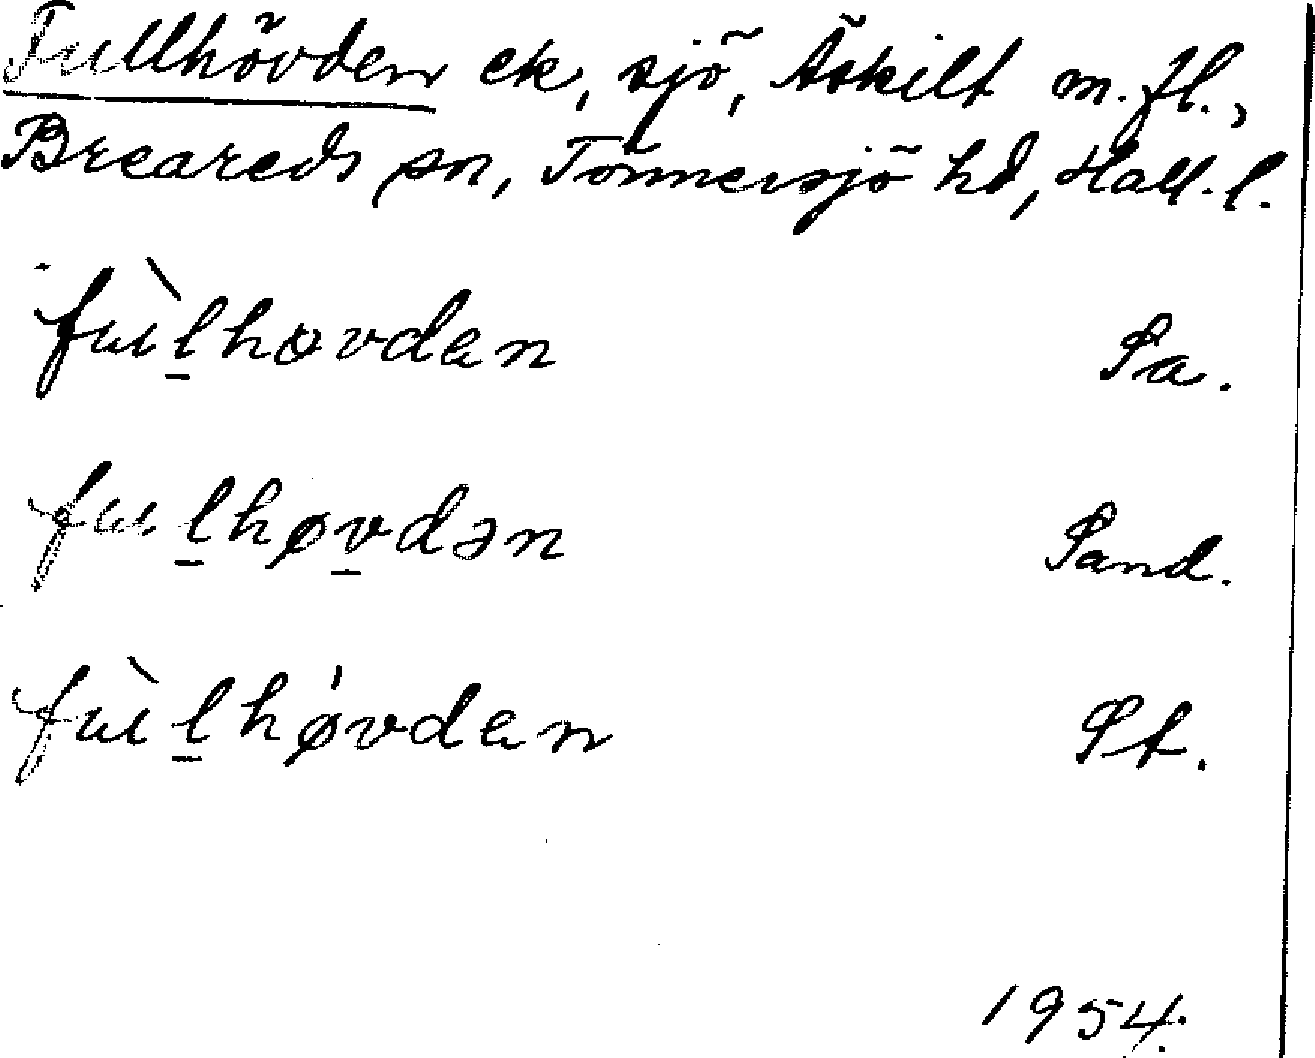 Fullhövden ek, sjö, Äskilt m.fl.,
Breareds sn, Tönnersjö hd, Hall.l.
fùl̠høvdan Sa.
ful̠høv̠dən Sand.
fùl̠hǿvdan St.
1954.